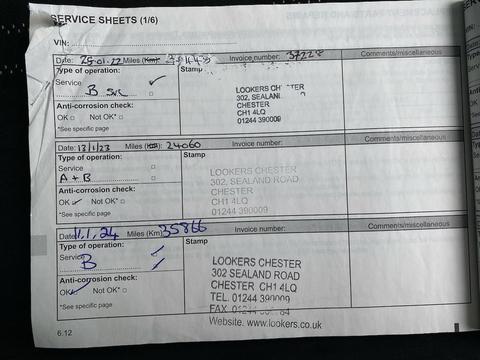 SERVICE SHEETS (1/6)
VIN:
Date: 25.01.22 Miles (Km) Invoice number: 37228 Comments/miscellaneous
Type of operation: Stamp
Service
B SVC
LOOKERS CHESTER
302, SEALAND
CHESTER
CH1 4LQ
01244 390009
Anti-corrosion check:
OK Not OK*
*See specific page
Date: 13/1/23 Miles (Km) 24060 Invoice number: Comments/miscellaneous
Type of operation: Stamp
Service
A + B
LOOKERS CHESTER
302, SEALAND ROAD
CHESTER
CH1 4LQ
01244 390009
Anti-corrosion check:
OK ✓ Not OK*
*See specific page
Date 11,1,24 Miles (Km) 35866 Invoice number: Comments/miscellaneous
Type of operation: Stamp
Service
B ✓
LOOKERS CHESTER
302 SEALAND ROAD
CHESTER CH1 4LQ
TEL. 01244 390009
FAX 01244
Website. www.lookers.co.uk
Anti-corrosion check:
OK ✓ Not OK*
*See specific page
6.12